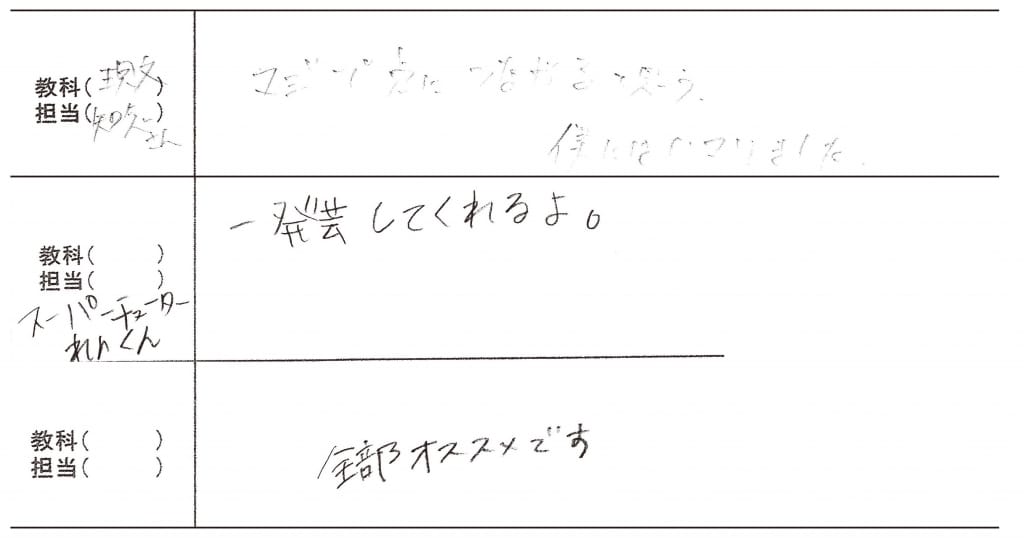 教科(現文)
担当(知久さん)
マジで点につながると思う。
僕にはハマりました。
教科(　　)
担当(　　)
スーパーチューター
れいくん
一発芸してくれるよ。
教科(　　)
担当(　　)
全部オススメです